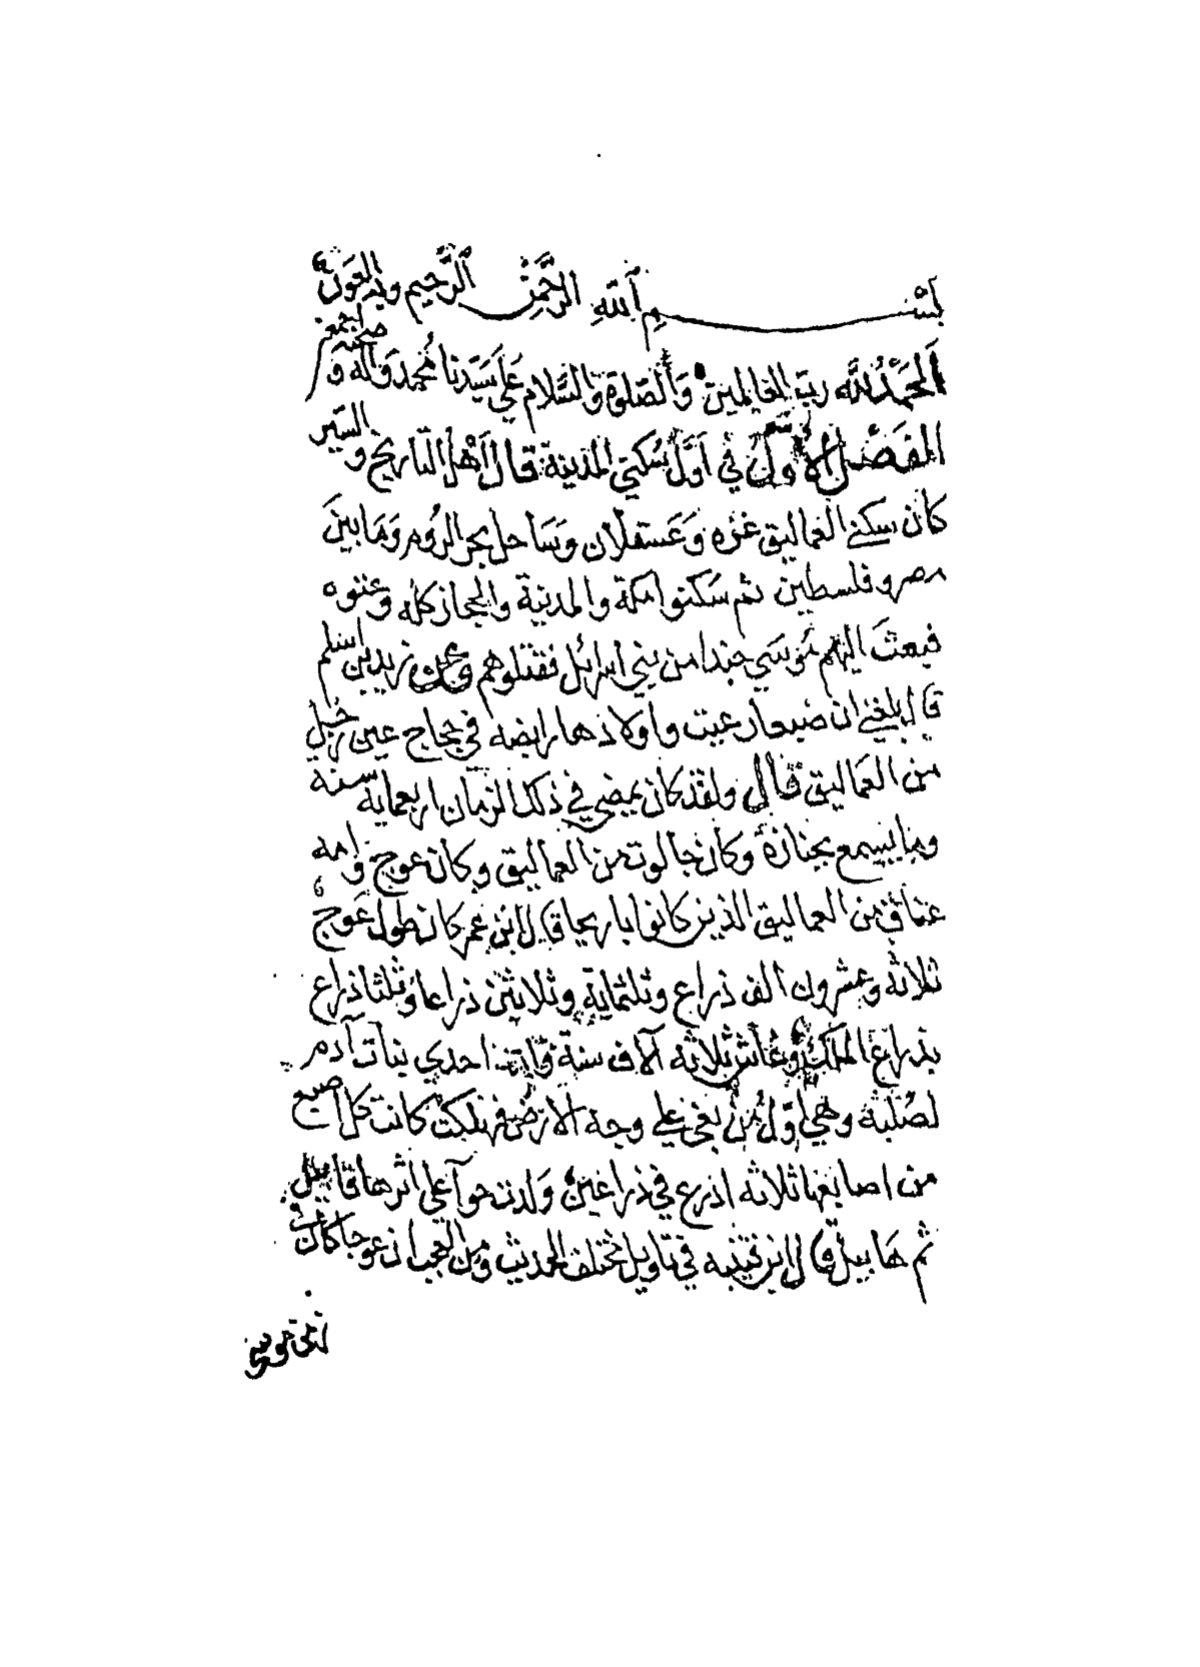 بسم الله الرحمن الرحيم وبه العون
الحمد لله رب العالمين والصلوة والسلام علي سيدنا محمد واله وصحبه اجمعين
الفصل الأول في اول سكني المدينة قال اهل التاريخ والسير
كان سكني العماليق غزه وعسقلان وساحل بحر الروم وما بين
مصر وفلسطين ثم سكنوا مكة والمدينة والحجاز كله وعتوه
فبعث اليهم موسي جندا من بني اسرائل فقتلوهم وعن زيد بن اسلم
قال بلغني ان ضبعا رعيت واولادها رابضه في حجاج عين رجل
من العماليق قال ولقد كان يمضي في ذلك الزمان اربعماية سنة
وما يسمع بجنازة وكان جالوت من العماليق وكان عوج وامه
عناق من العماليق الذين كانوا باريحا قال ابن عمر كان طول عوج
ثلاثة وعشرون الف ذراع وثلثماية وثلاثين ذراعا وثلثا ذراع
بذراع الملك وعاش ثلاثه آلاف سنة احدي بنات آدم
لصلبه وهي اول من بغي علي وجه الارض فهلكت كانت كل اصبع
من اصابعها ثلاثه اذرع في ذراعين ولدت حوآ علي اثرها قابيل
ثم هابيل قال ابن قتيبه في تاويل مختلف الحديث ومن العجب ان عوجا كان في
زمن موسي